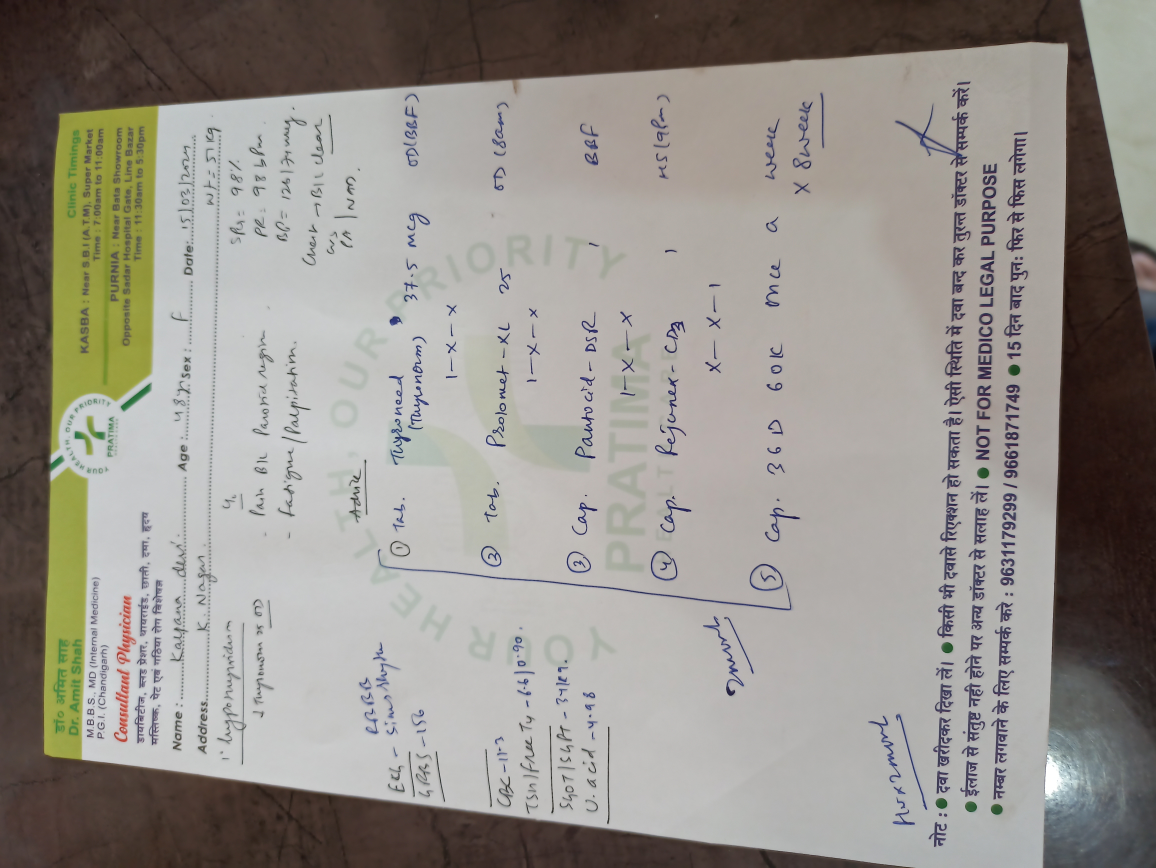 डा० अमित साह
Dr. Amit Shah
M.B.B.S., MD (Internal Medicine)
P.G.I. (Chandigarh)
Consultant Physician
डायबिटीज, ब्लड प्रेशर, थायराईड, छाती, दमा, हृदय
मस्तिष्क, पेट एवं गठिया रोग विशेषज्ञ
YOUR HEALTH, OUR PRIORITY
PRATIMA
Clinic Timings
KASBA : Near S.B.I (A.T.M), Super Market
Time : 7:00am to 11:00am
PURNIA : Near Bata Showroom
Opposite Sadar Hospital Gate, Line Bazar
Time : 11:30am to 5:30pm
Name : Kalpana devi Age : 48 yr Sex : F Date: 15/03/2024
Address K. Nagar Wt = 51 kg
hypothyroidism
Thyronorm OD
Pain B/L Parotid region
Fatigue / Palpitation.
= 98%
PR = 98 bpm
BP = 120/70 mmHg
Chest → B/L clear
PA / NAD.
Advice
EKG - RBBB
GRBS - 156
CBC - 11.3
TSH / Free T4 - 6.6 / 0.90.
SGOT / SGPT - 34/27.
U. acid - 4.98
① Tab. Thyroneed 37.5 mcg OD (BBF)
(Thyronorm)
1-x-x
② Tab. Prolomet-XL 25 OD (8am)
1-x-x
③ Cap. Pantocid-DSR 1 BBF
1-x-x
④ Cap. Rejunex-CD3 1 HS (9pm)
x-x-1
⑤ Cap. 36D 60K once a week
x 8 week
2 month
YOUR HEALTH, OUR PRIORITY
PRATIMA
x 2 month
नोट : ● दवा खरीदकर दिखा लें। ● किसी भी दवासे रिएक्शन हो सकता है। ऐसी स्थिति में दवा बन्द कर तुरन्त डॉक्टर से सम्पर्क करें।
● ईलाज से संतुष्ट नही होने पर अन्य डॉक्टर से सलाह लें। ● NOT FOR MEDICO LEGAL PURPOSE
● नम्बर लगवाने के लिए सम्पर्क करे : 9631179299 / 9661871749 ● 15 दिन बाद पुनः फिर से फिस लगेगा।